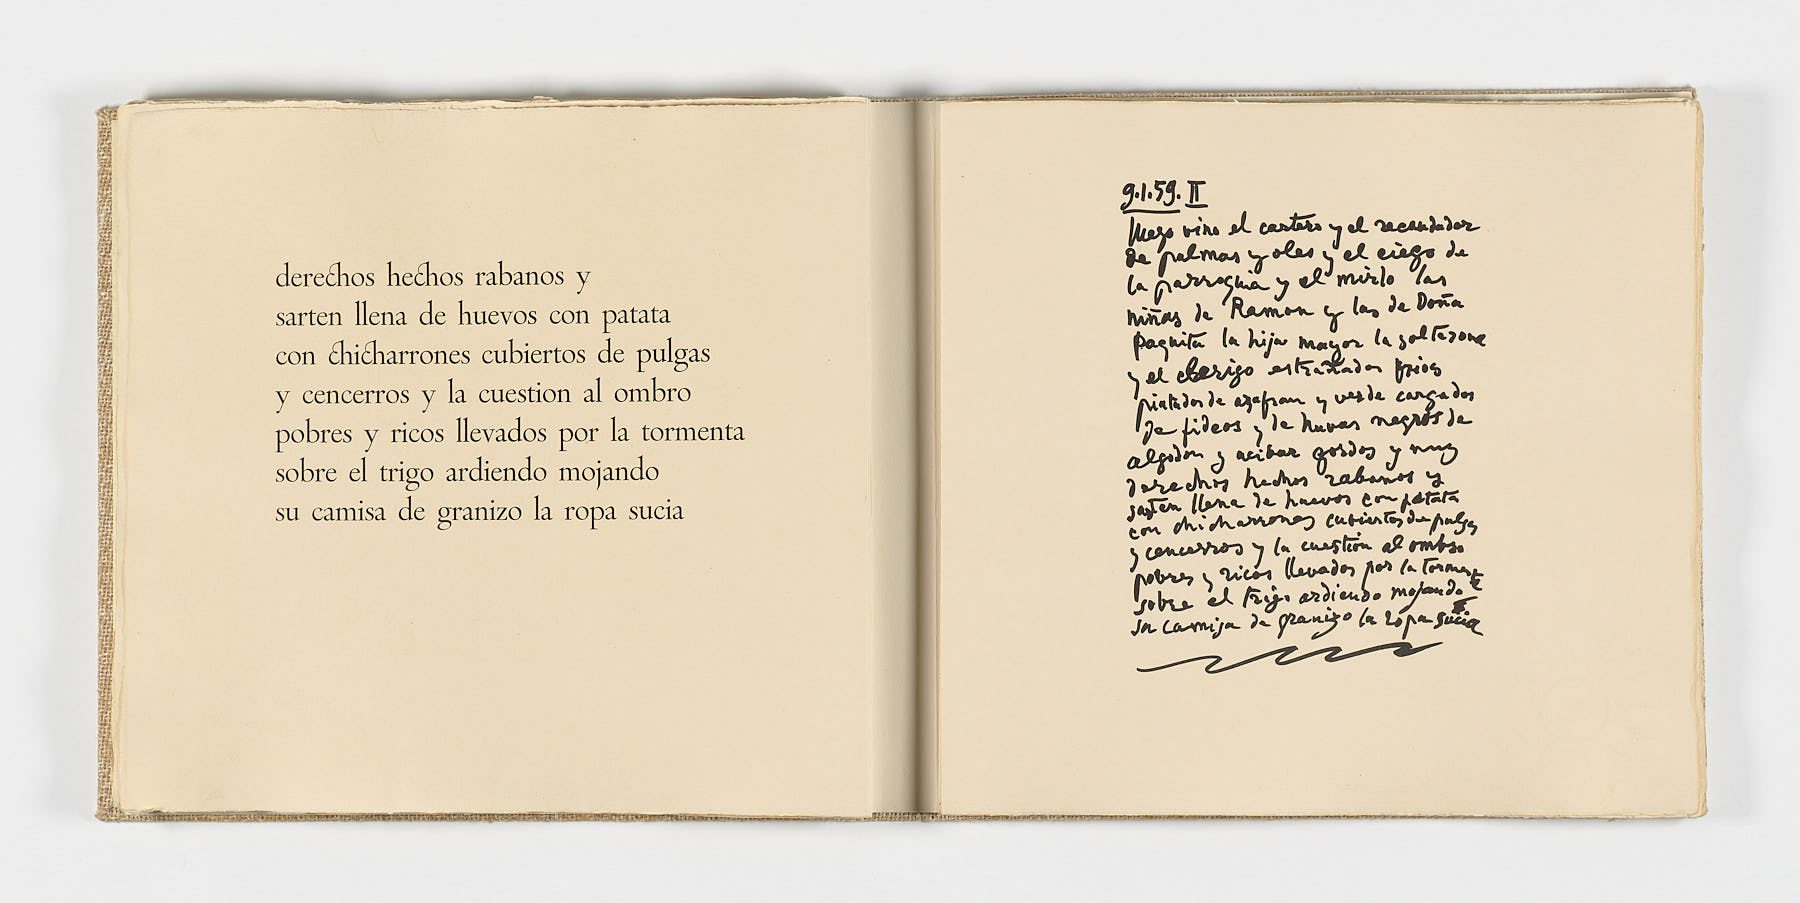 derechos hechos rabanos y
sarten llena de huevos con patata
con chicharrones cubiertos de pulgas
y cencerros y la cuestion al ombro
pobres y ricos llevados por la tormenta
sobre el trigo ardiendo mojando
su camisa de granizo la ropa sucia
9.1.59. II
luego vino el cartero y el recaudador
de palmas y oles y el ciego de
la parroquia y el mirlo las
niñas de Ramon y las de Doña
Paquita la hija mayor la solterona
y el clerigo estrañados frios
pintados de azafran y verde cargados
de fideos y de huvas negros de
algodon y acibar gordos y muy
derechos hechos rabanos y
sarten llena de huevos con patata
con chicharrones cubiertos de pulgas
y cencerros y la cuestion al ombro
pobres y ricos llevados por la tormenta
sobre el trigo ardiendo mojando
su camisa de granizo la ropa sucia